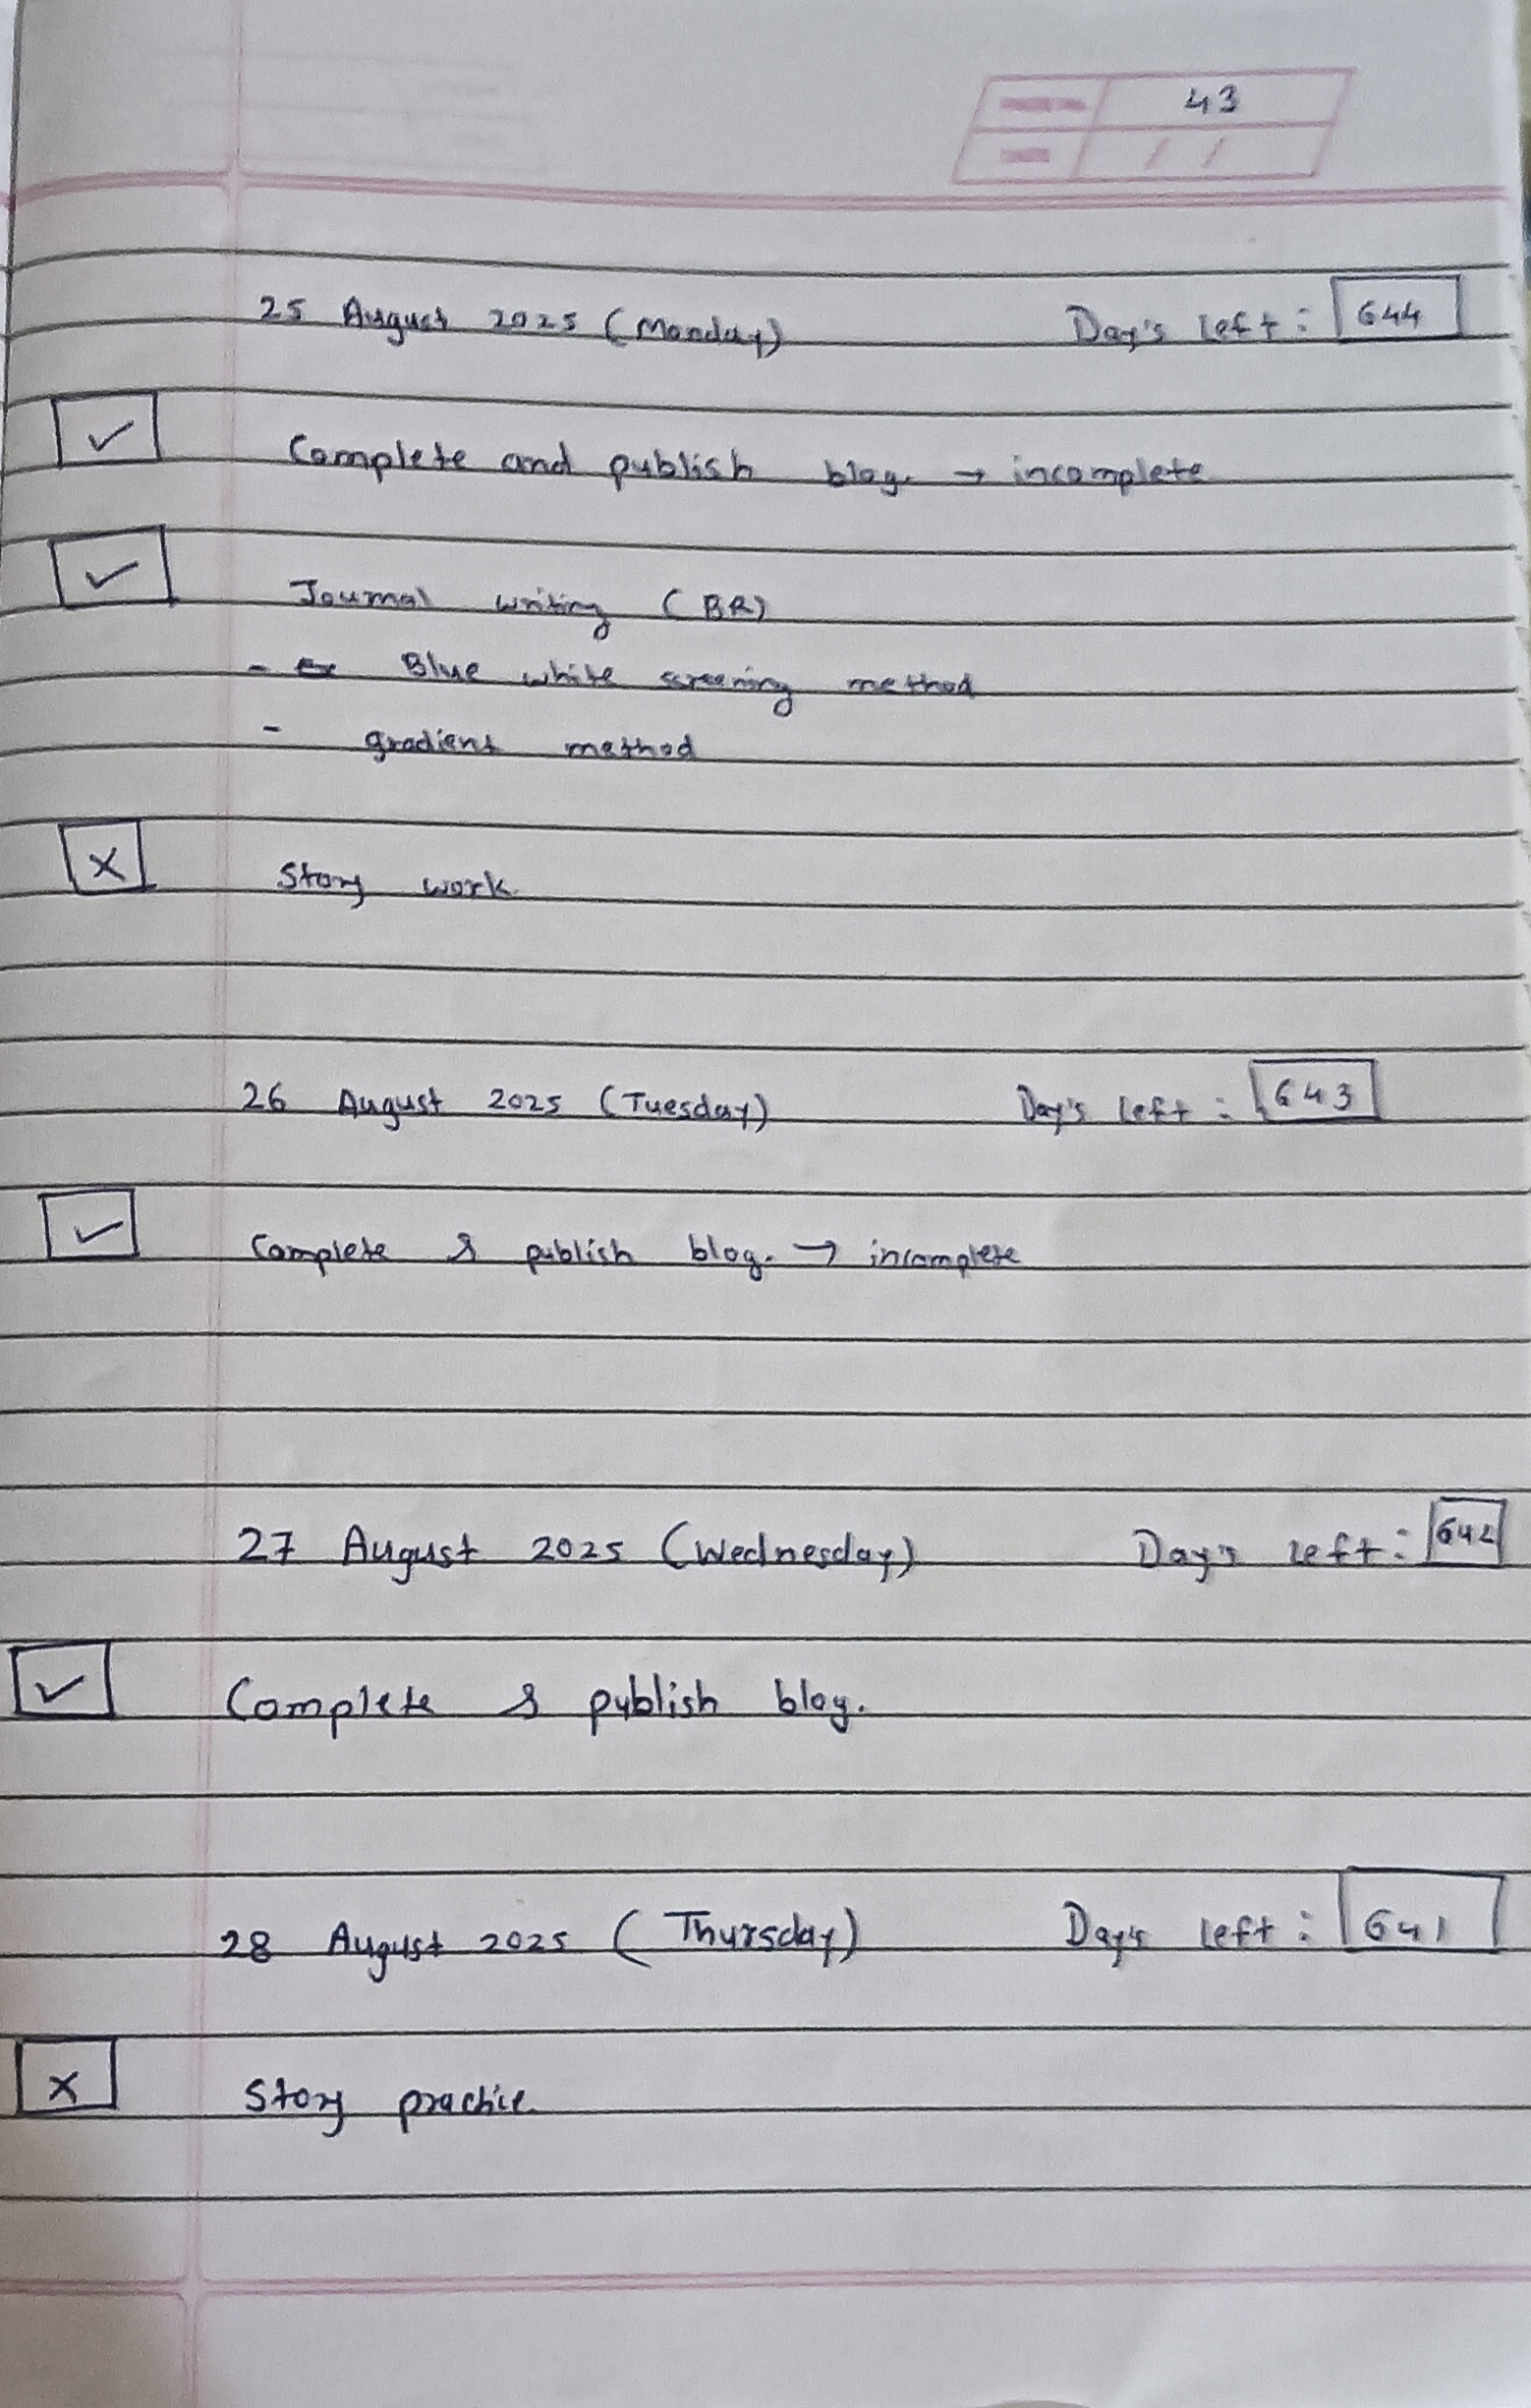 43
/ /
25 August 2025 (Monday) Day's left: 644
✓ Complete and publish blog. → incomplete
✓ Journal writing (BR)
- Blue white screening method
- gradient method
X Story work.
26 August 2025 (Tuesday) Day's left: 643
✓ Complete & publish blog. → incomplete
27 August 2025 (Wednesday) Day's left: 642
✓ Complete & publish blog.
28 August 2025 (Thursday) Day's left: 641
X Story practice.